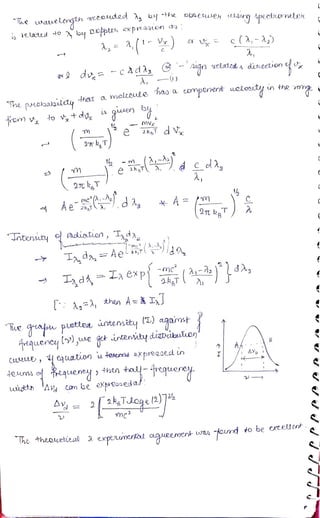 The wavelength recorded λ₂ by the observer using spectrometer
is related to λ₁ by Doppler expression as:
→ λ₂ = λ₁(1 - Vx/c) or Vx = c(λ₁-λ₂)/λ₁
or dvx = -c dλ₂/λ₁ —(1) sign relates direction of Vx
The probability that a molecule has a component velocity in the range
from Vx to Vx + dVx is given by
(m/2πkBT)^½ e^(-mVx²/2kBT) dVx
⇒ (m/2πkBT)^½ e^(-m/2kBT (λ₁-λ₂/λ₁)²) c dλ₂/λ₁
⇒ Ae^(-mc²/2kBT (λ₁-λ₂/λ₁)²) dλ₂ * A = (m/2πkBT)^½ c/λ₁
Intensity of radiation, Iλ₂dλ₂
→ Iλ₂dλ₂ = Ae^[-mc²/2kBT (λ₁-λ₂/λ₁)²] dλ₂
→ Iλ₂dλ₂ = Iλ₁ exp{-mc²/2kBT (λ₁-λ₂/λ₁)²} dλ₂
[∵ λ₂=λ₁ then A = Iλ₁]
The graph plotted intensity (I) against
frequency (ν), we get intensity distribution
curve, if equation is terms expressed in
terms of frequency, then half-frequency
width Δνd can be expressed as
Δνd/ν = 2[2kBT loge(2)/mc²]^½
A B
Δνd
I
ν →
The theoretical & experimental agreement was found to be excellent.